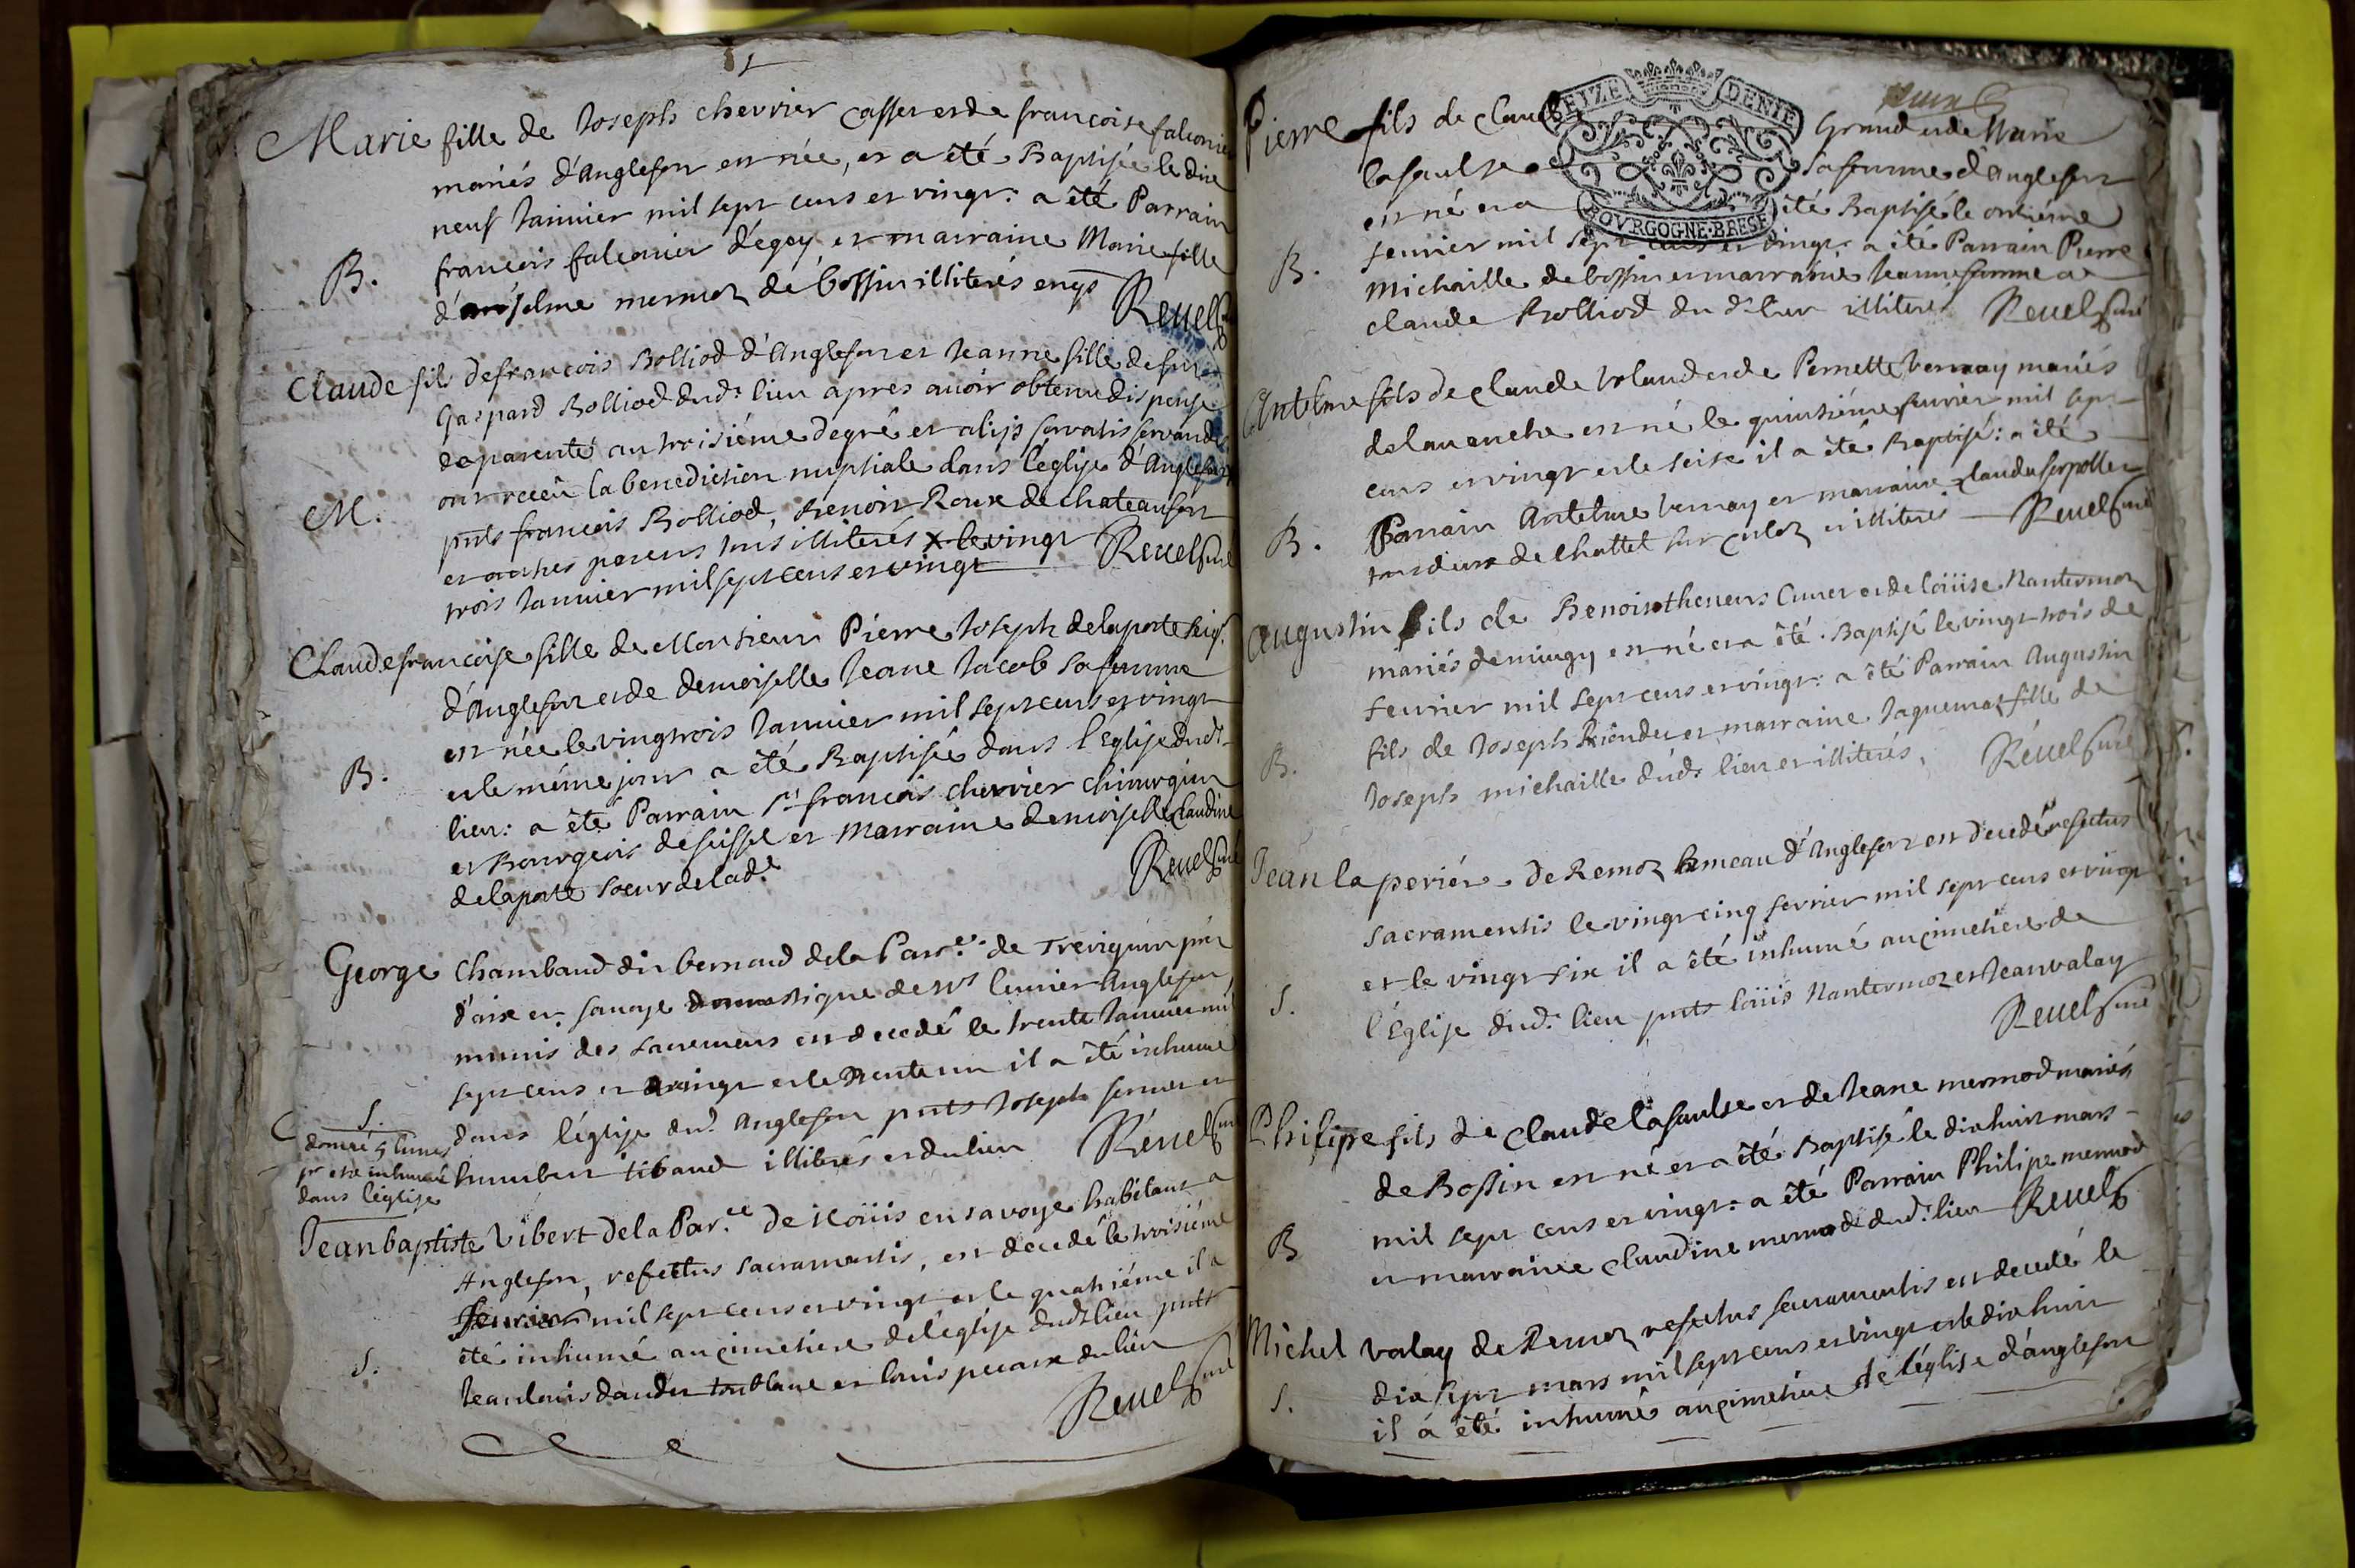 Marie fille de Joseph chevrier Casset et de francoise falconier
mariés d'Anglefort est née, et a été Baptisée le dix
neuf Januier mil sept cens et vingt: a êté Parrain
B.
francois falconier d'égoy et marraine Marie fille
d'anselme mermoz de bossin illiterés
Reuel curé
Claude fils de francois Bolliod d'Anglefort et Jeanne fille de feu
Gaspard Bolliod dud.t lieu apres auoir obtenu dispense
de parenté au troisiéme degré et alijs servatis servandis
ont receu la benediction nuptiale dans l'eglise d'Anglefort
M.
pnts francois Bolliod, Benoit Roux de chateaufort
et autres parens tous illiterés x le vingt
trois Januier mil sept cens et vingt
Reuel curé
Claude francoise fille de Monsieur Pierre Joseph delaporte seig.r
d'Anglefort et de demoiselle Jeane Jacob sa femme
est née le vingtrois Januier mil sept cens et vingt
B.
et le même jour a été Baptisée dans l'Eglise dud.t
lieu: a êté Parrain s.r francois chevrier chirurgien
et Bourgeois de seissel et Marraine demoiselle Claudine
delaporte soeur de lad.e
Reuel curé
George Chambaud dit bernard de la Parr.e de Treviguin prés
d'aix en savoye domestique de
munis des sacremens est decedé le trente Januier mil
sept cens et vingt et le trente un il a été inhumé
S.
dans l'église dud. Anglefort pnts Joseph et
donné 5 liures
pr etre inhumé
dans l'église
humbert tibaud illiterés et du lieu
Reuel curé
Jean baptiste Vibert de la Par.ce de en savoye habitant a
Anglefort, refectus sacramentis, est decedé le troisiéme
feurier mil sept cens et vingt et le quatriéme il a
été inhumé au cimetiere de l'église dud.t lieu pnts
S.
Jean louis et louis du lieu
Reuel curé
Pierre fils de claude Grand et de Marie
SEIZE DENIE
BOVRGOGNE·BRESE
lasaulse sa femme d'Anglefort
est né et a été Baptisé le onzieme
B.
feurier mil sept cens et vingt: a été Parrain Pierre
michaille de bossin et marraine Jeanne femme a
claude Bolliod du d.t lieu illiteres
Reuel curé
Antelme fils de claude Voland et de Pernette Vernay mariés
de lauanche est né le quinziéme feurier mil sept
cens et vingt et le seize il a été Baptisé: a été
B.
Parrain Antelme Vernay et marraine Clauda
tous deux de chattel sur culoz et illiterés
Reuel curé
Augustin fils de Benoit theuens Cuner et de loüise Nantermoz
mariés de mingy est né et a été Baptisé le vingt trois de
feurier mil sept cens et vingt: a êté Parrain Augustin
B.
fils de Joseph et marraine Jaquema fille de
Joseph michaille dud.t lieu et illiterés.
Réuel curé
Jean la periér de Remoz hameau d'Anglefort est decedé refectus
sacramentis le vingt cinq fevrier mil sept cens et vingt
et le vingt six il a été inhumé au cimetiere de
S.
l'Eglise dud.t lieu pnts loüis Nantermoz et Jean valay
Reuel curé
Philipe fils de claude lasaulse et de Jeane mermod mariés
de Bossin est né et a été Baptisé le dix huit mars
mil sept cens et vingt: a été Parrain Philipe mermod
B
et marraine claudine mermod dud.t lieu
Reuel
Michel valay de Remoz refectus sacramentis est decedé le
dix sept mars mil sept cens et vingt et le dix huit
S.
il a été inhumé au cimetiere de l'église d'anglefort